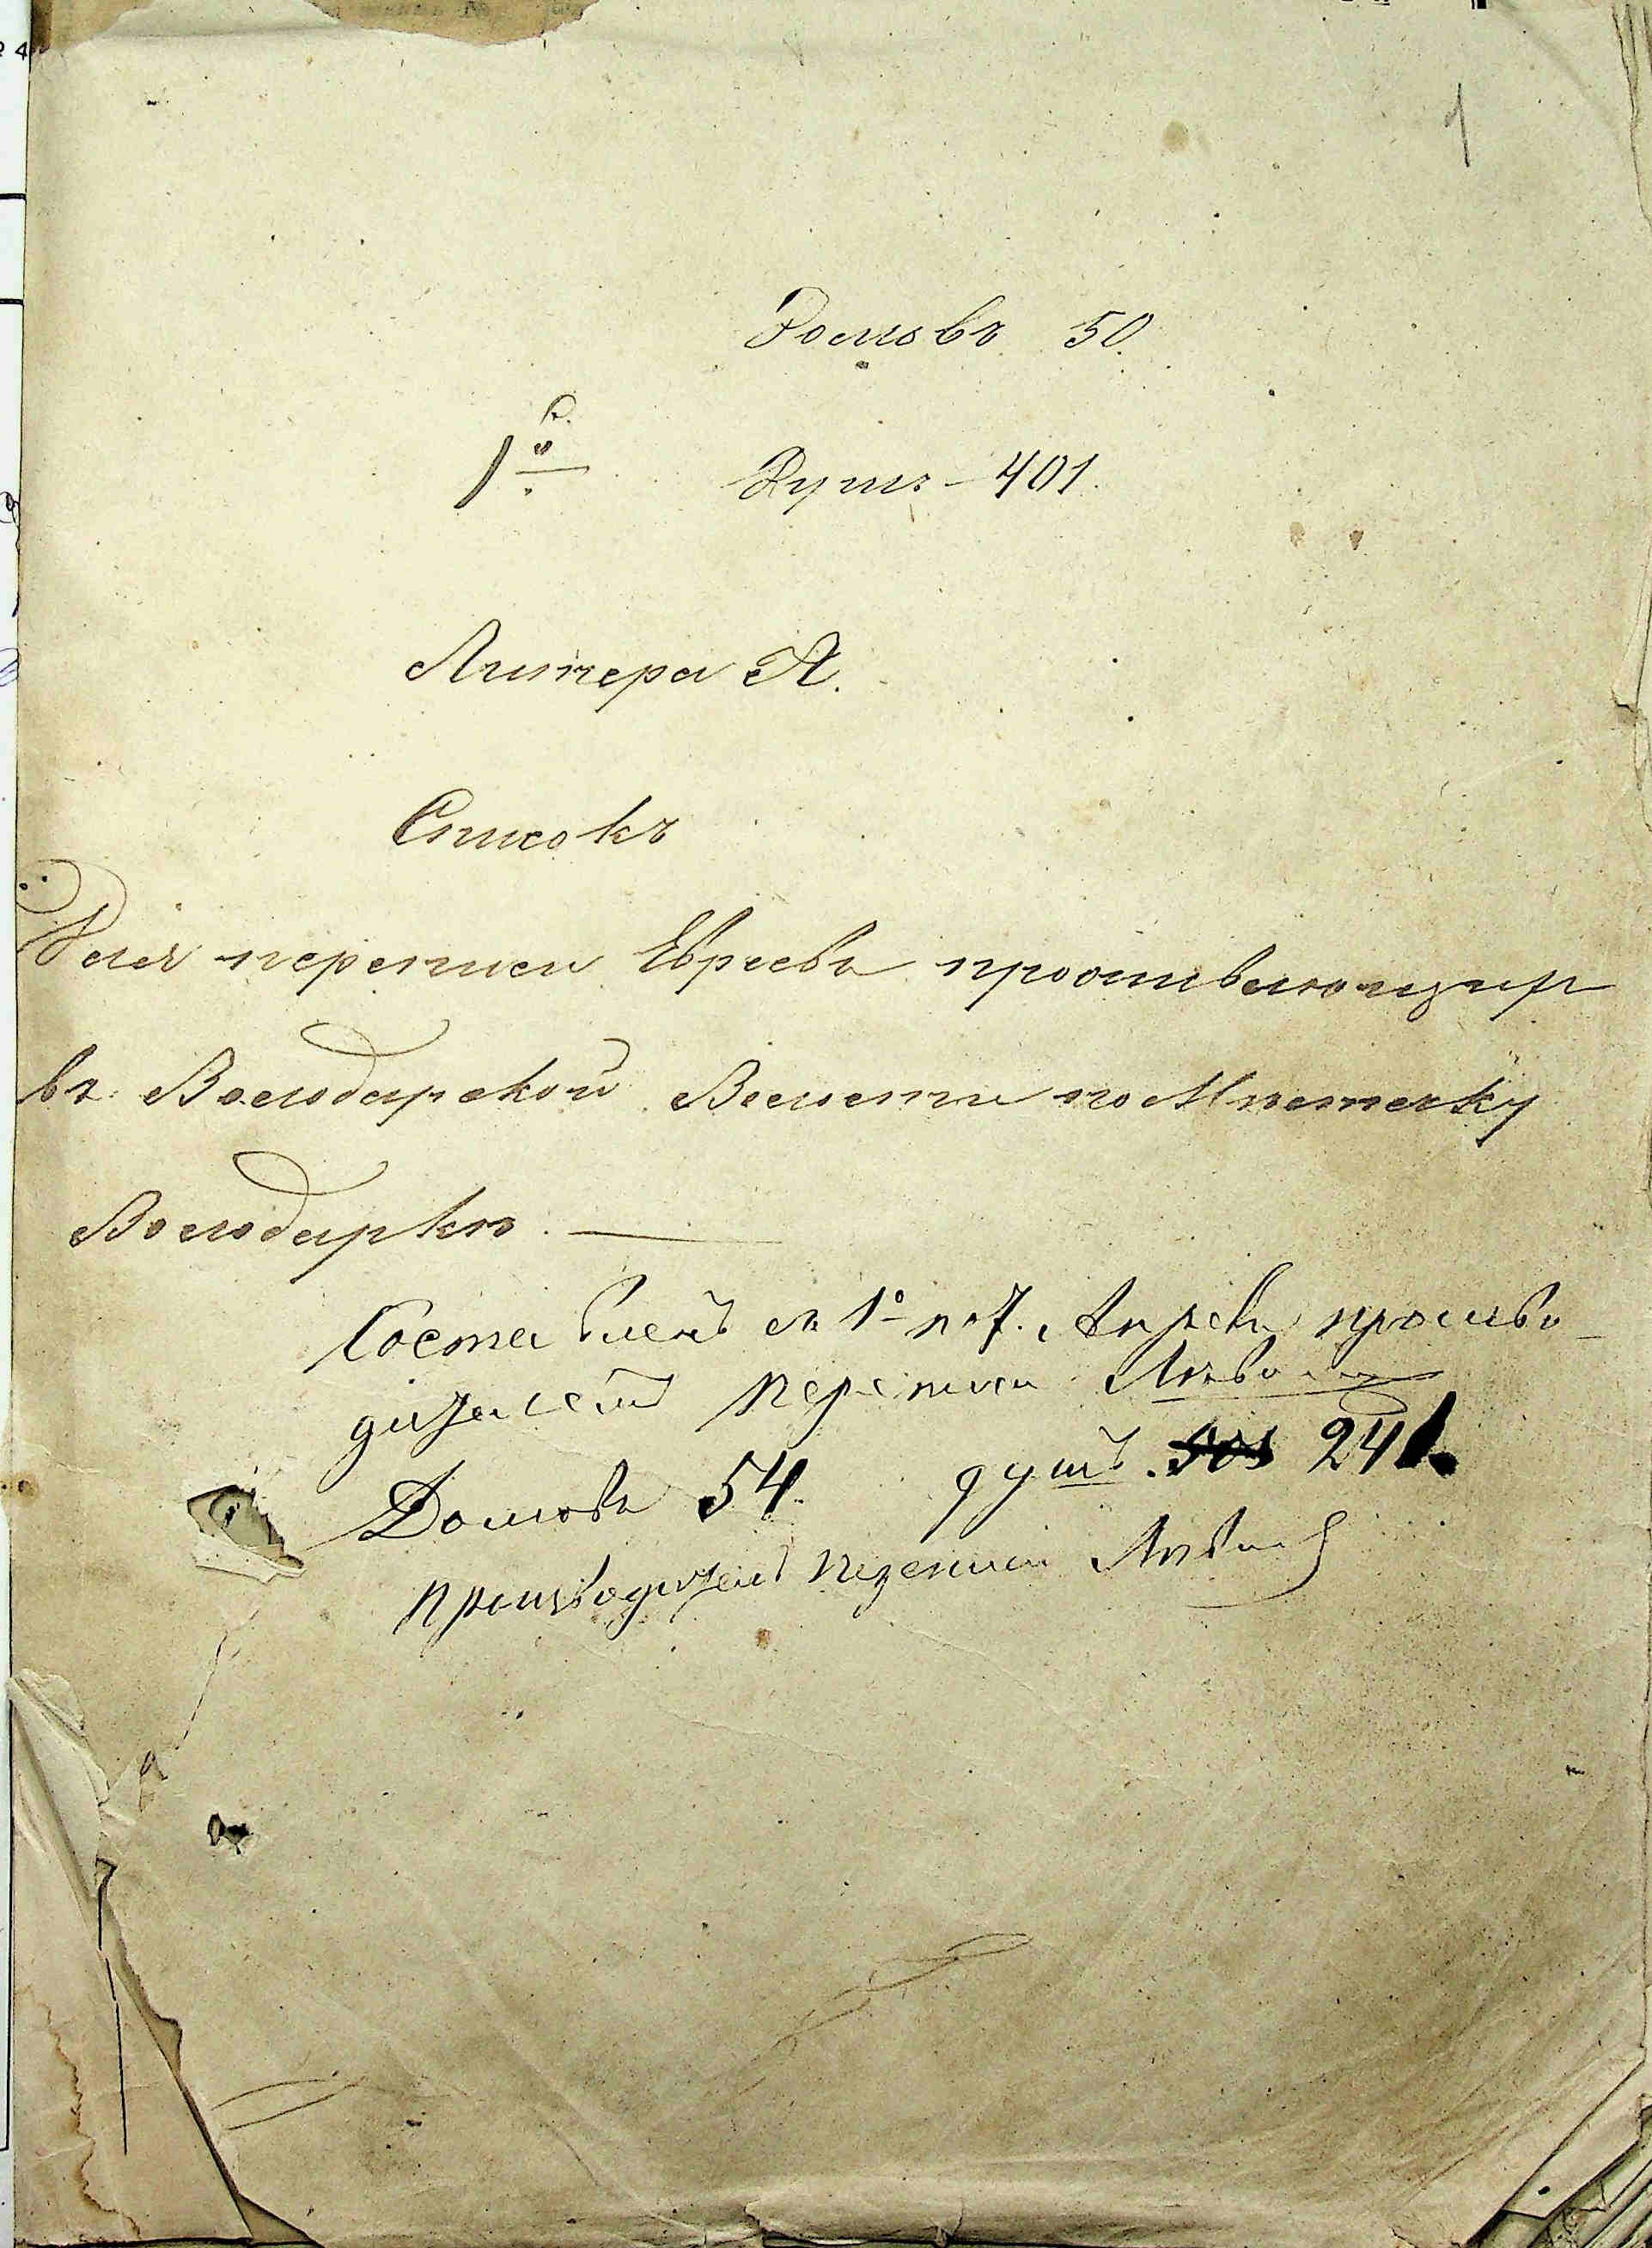 1
Домовъ 50.
1й
Душъ - 401.
Литера А.
Списокъ
Для переписи Евреевъ проживающихъ
въ Володарской Волости по Мѣстечку
Володаркѣ. —
Составленъ съ 1го по 7. Апрѣля произво-
дителемъ переписи
Домовъ 54. душъ 241.
производитель переписи